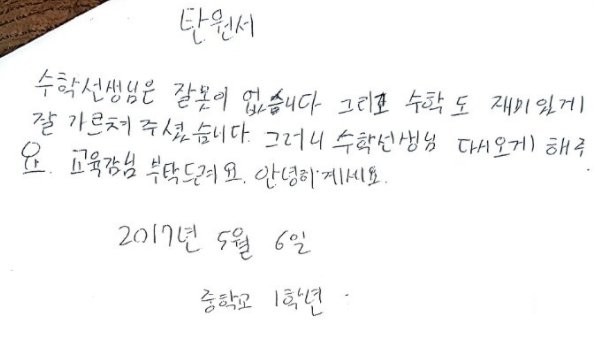 탄원서
수학선생님은 잘못이 없습니다 그리고 수학도 재미있게
잘 가르쳐 주셨습니다. 그러니 수학선생님 다시오게 해주
요. 교육감님 부탁드려요. 안녕히계세요.
2017년 5월 6일
중학교 1학년